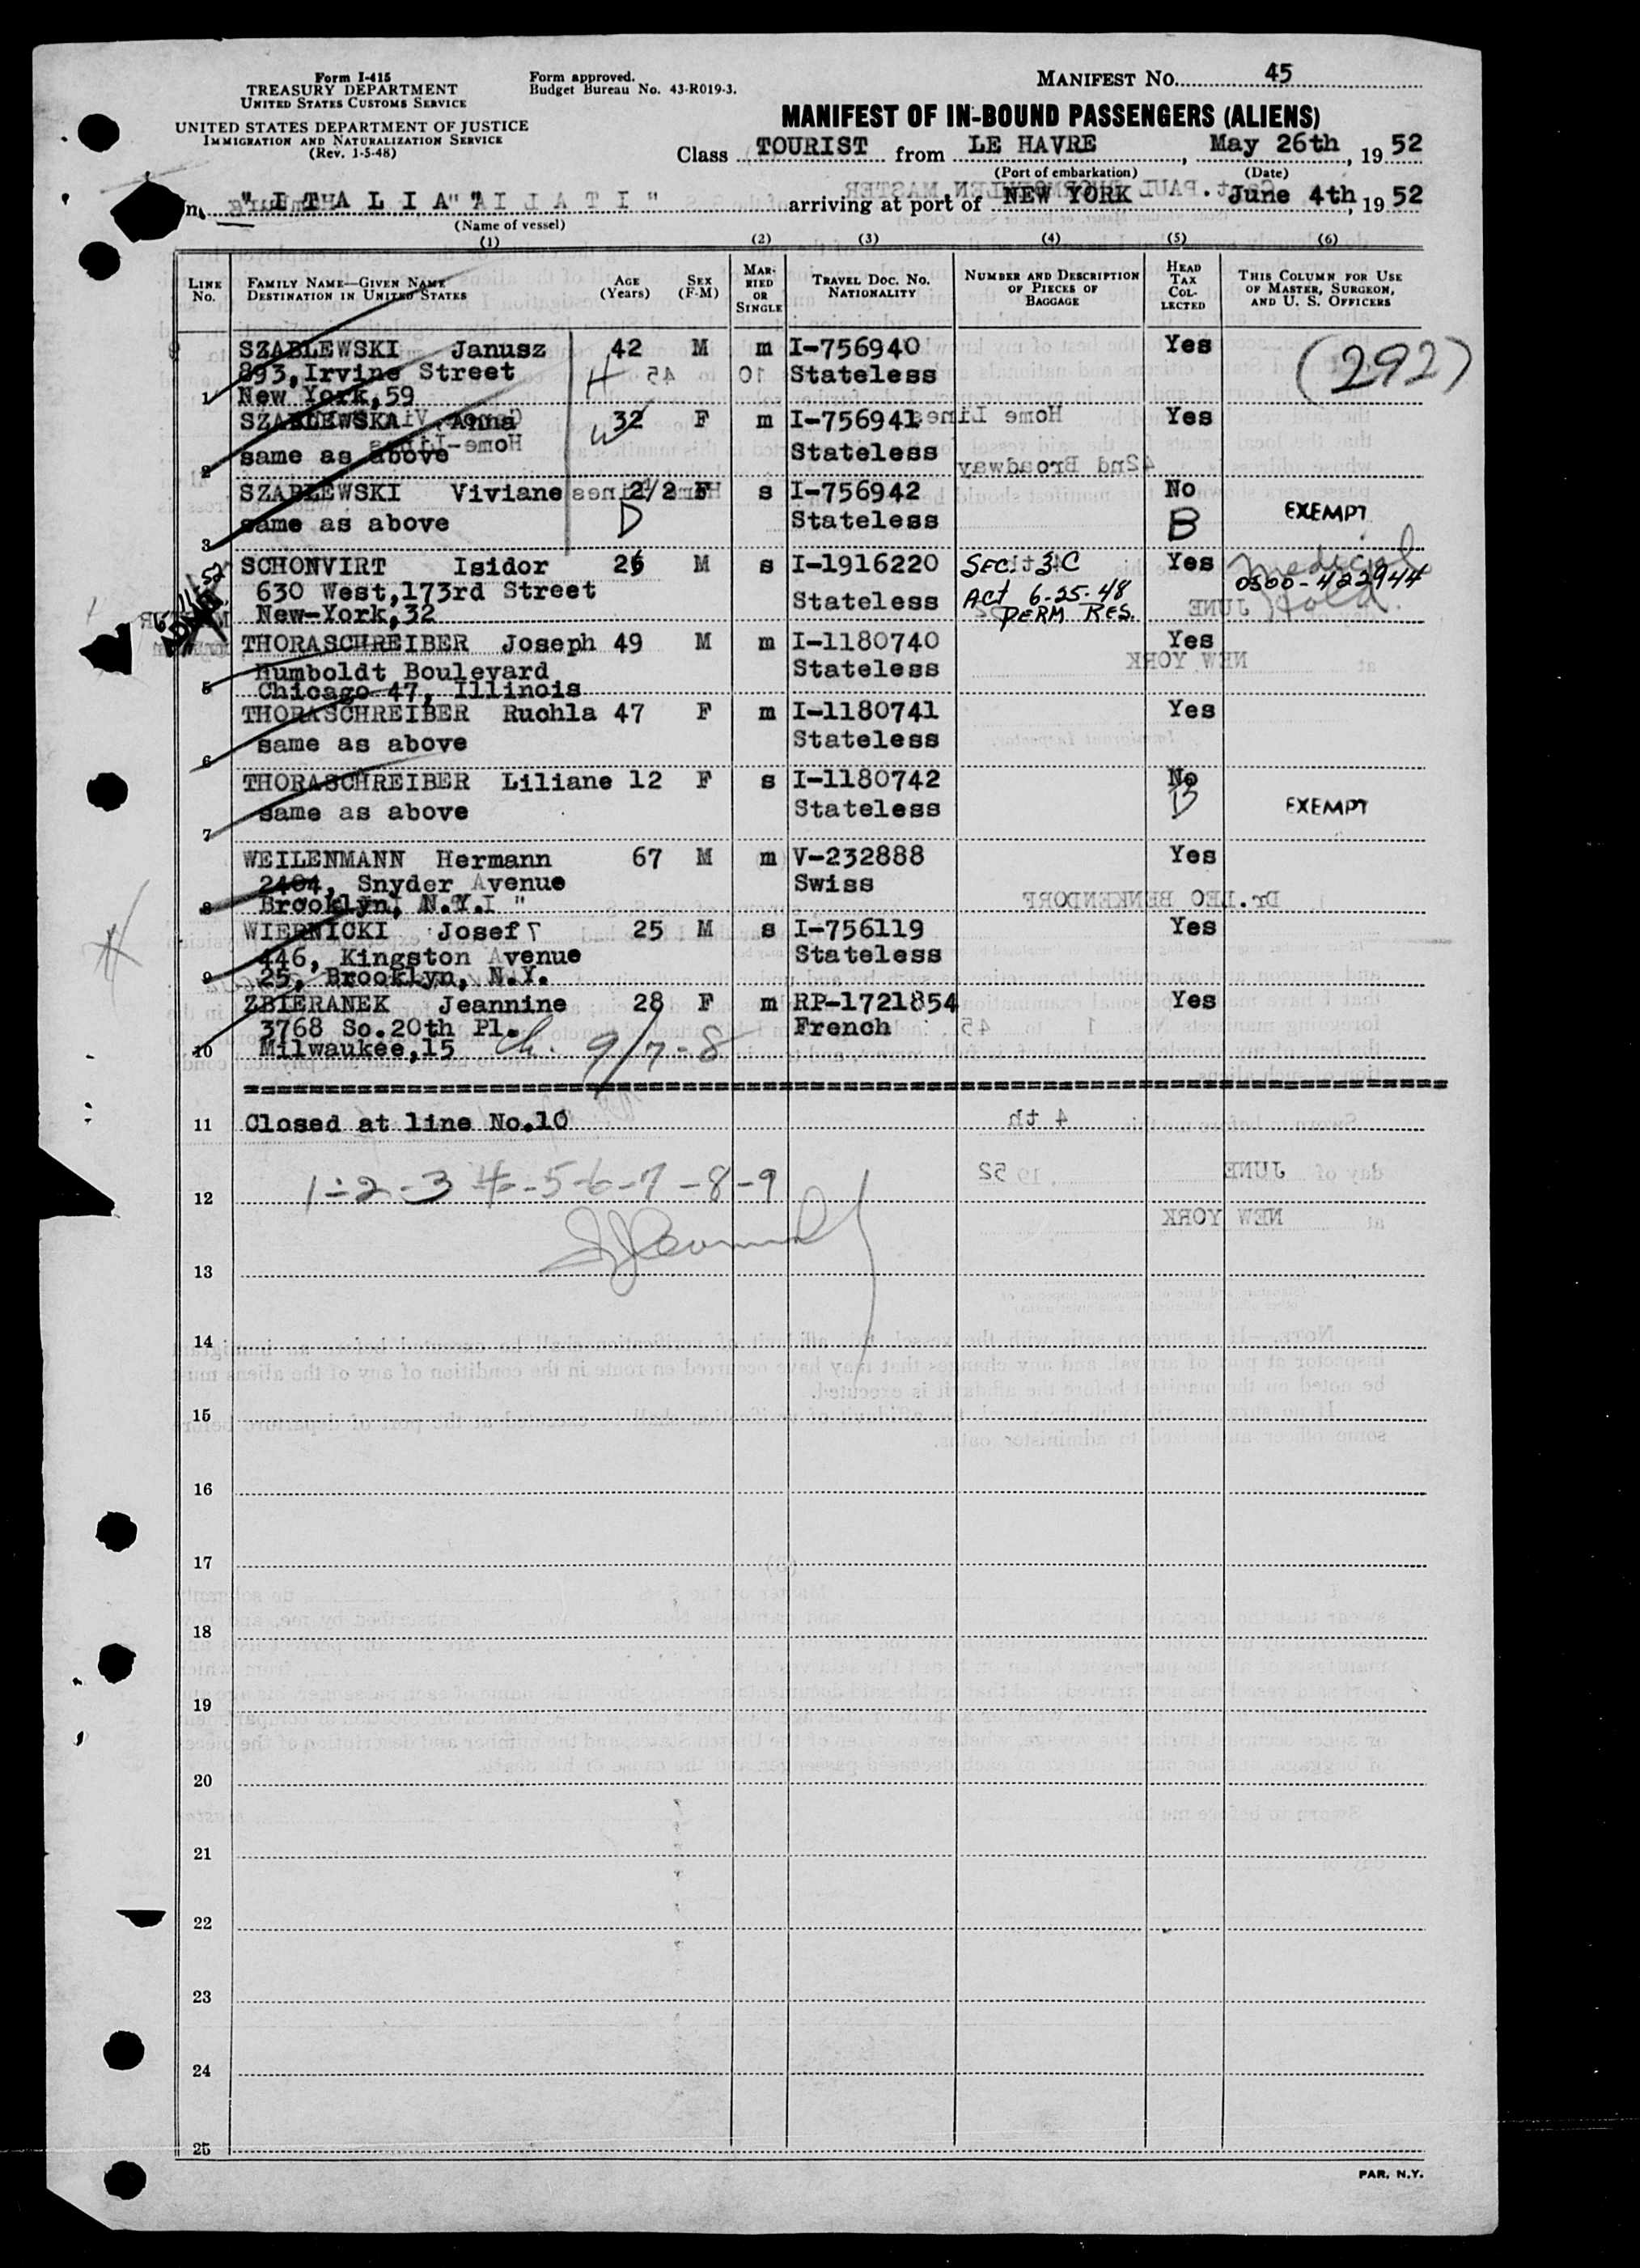 Form I-415
TREASURY DEPARTMENT
UNITED STATES CUSTOMS SERVICE
UNITED STATES DEPARTMENT OF JUSTICE
IMMIGRATION AND NATURALIZATION SERVICE
(Rev. 1-5-48)
Form approved.
Budget Bureau No. 43-R019-3.
MANIFEST NO. 45
MANIFEST OF IN-BOUND PASSENGERS (ALIENS)
Class TOURIST from LE HAVRE, May 26th, 19 52
(Port of embarkation) (Date)
"I T A L I A" arriving at port of NEW YORK June 4th, 19 52
(Name of vessel)
(1) (2) (3) (4) (5) (6)
LINE No. FAMILY NAME—GIVEN NAME DESTINATION IN UNITED STATES AGE (Years) SEX (F-M) MARRIED OR SINGLE TRAVEL DOC. NO. NATIONALITY NUMBER AND DESCRIPTION OF PIECES OF BAGGAGE HEAD TAX COLLECTED THIS COLUMN FOR USE OF MASTER, SURGEON, AND U. S. OFFICERS
SZABLEWSKI Janusz 42 M m I-756940 Yes (292)
893, Irvine Street H Stateless
1 New York,59
SZABLEWSKA Anna 32 F m I-756941 Yes
2 same as above W Stateless
SZABLEWSKI Viviane 2/2 F s I-756942 No
3 same as above D Stateless B EXEMPT
SCHONVIRT Isidor 26 M s I-1916220 SEC. 3C Yes Medical
630 West,173rd Street Stateless Act 6-25-48 0300-422944
New-York,32 PERM RES. Hold.
THORASCHREIBER Joseph 49 M m I-1180740 Yes
Humboldt Boulevard Stateless
5 Chicago 47, Illinois
THORASCHREIBER Ruchla 47 F m I-1180741 Yes
6 same as above Stateless
THORASCHREIBER Liliane 12 F s I-1180742 No
7 same as above Stateless B EXEMPT
WEILENMANN Hermann 67 M m V-232888 Yes
2404, Snyder Avenue Swiss
8 Brooklyn, N.Y.
WIERNICKI Josef 25 M s I-756119 Yes
446, Kingston Avenue Stateless
9 25, Brooklyn, N.Y.
ZBIERANEK Jeannine 28 F m RP-1721854 Yes
3768 So.20th Pl. French
10 Milwaukee,15 Ch. 9/7-8
11 Closed at line No.10
12 1-2-3 4-5-6-7-8-9
13
14
15
16
17
18
19
20
21
22
23
24
25
PAR. N.Y.